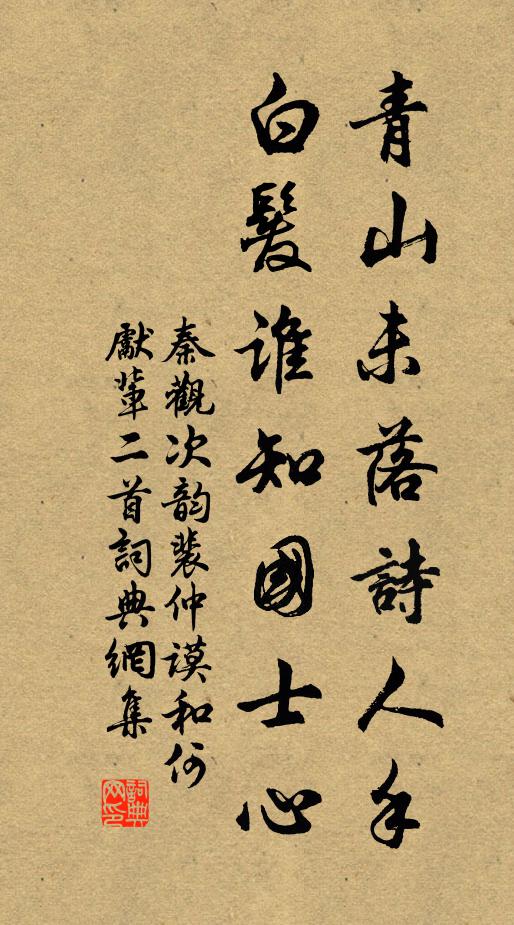 青山未落詩人手
白髮誰知國士心
秦觀次韵裴仲謨和何
獻輩二首詞典網集
詞典网印